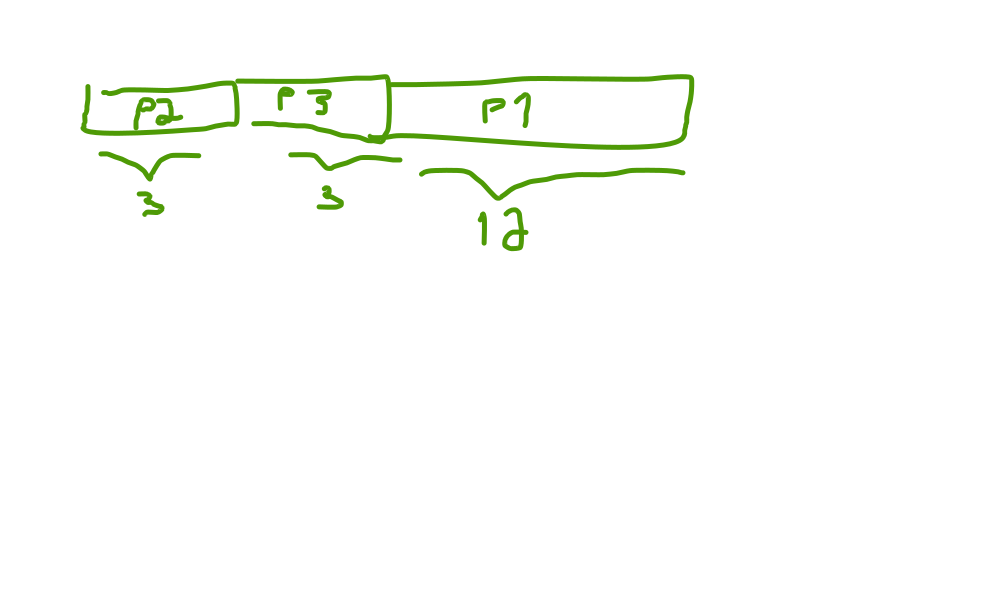 P2 P3 P1
3 3 12